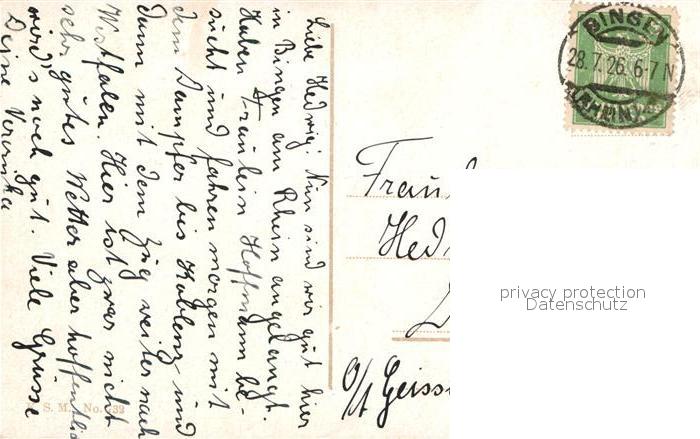 Liebe Hedwig! Nun sind wir gut hier
in Bingen am Rhein angelangt.
Haben Fräulein Hoffmann be-
sucht und fahren morgen mit
dem Dampfer bis Koblenz und
dann mit dem Zug weiter nach
Westfalen. Hier ist zwar nicht
sehr gutes Wetter aber hoffentlich
wird's noch gut. Viele Grüsse
Deine Veronika
BINGEN
28.7.26. 6-7 N
Fräul
Hed
O/A Geiss
privacy protection
Datenschutz
S. M. No. 732